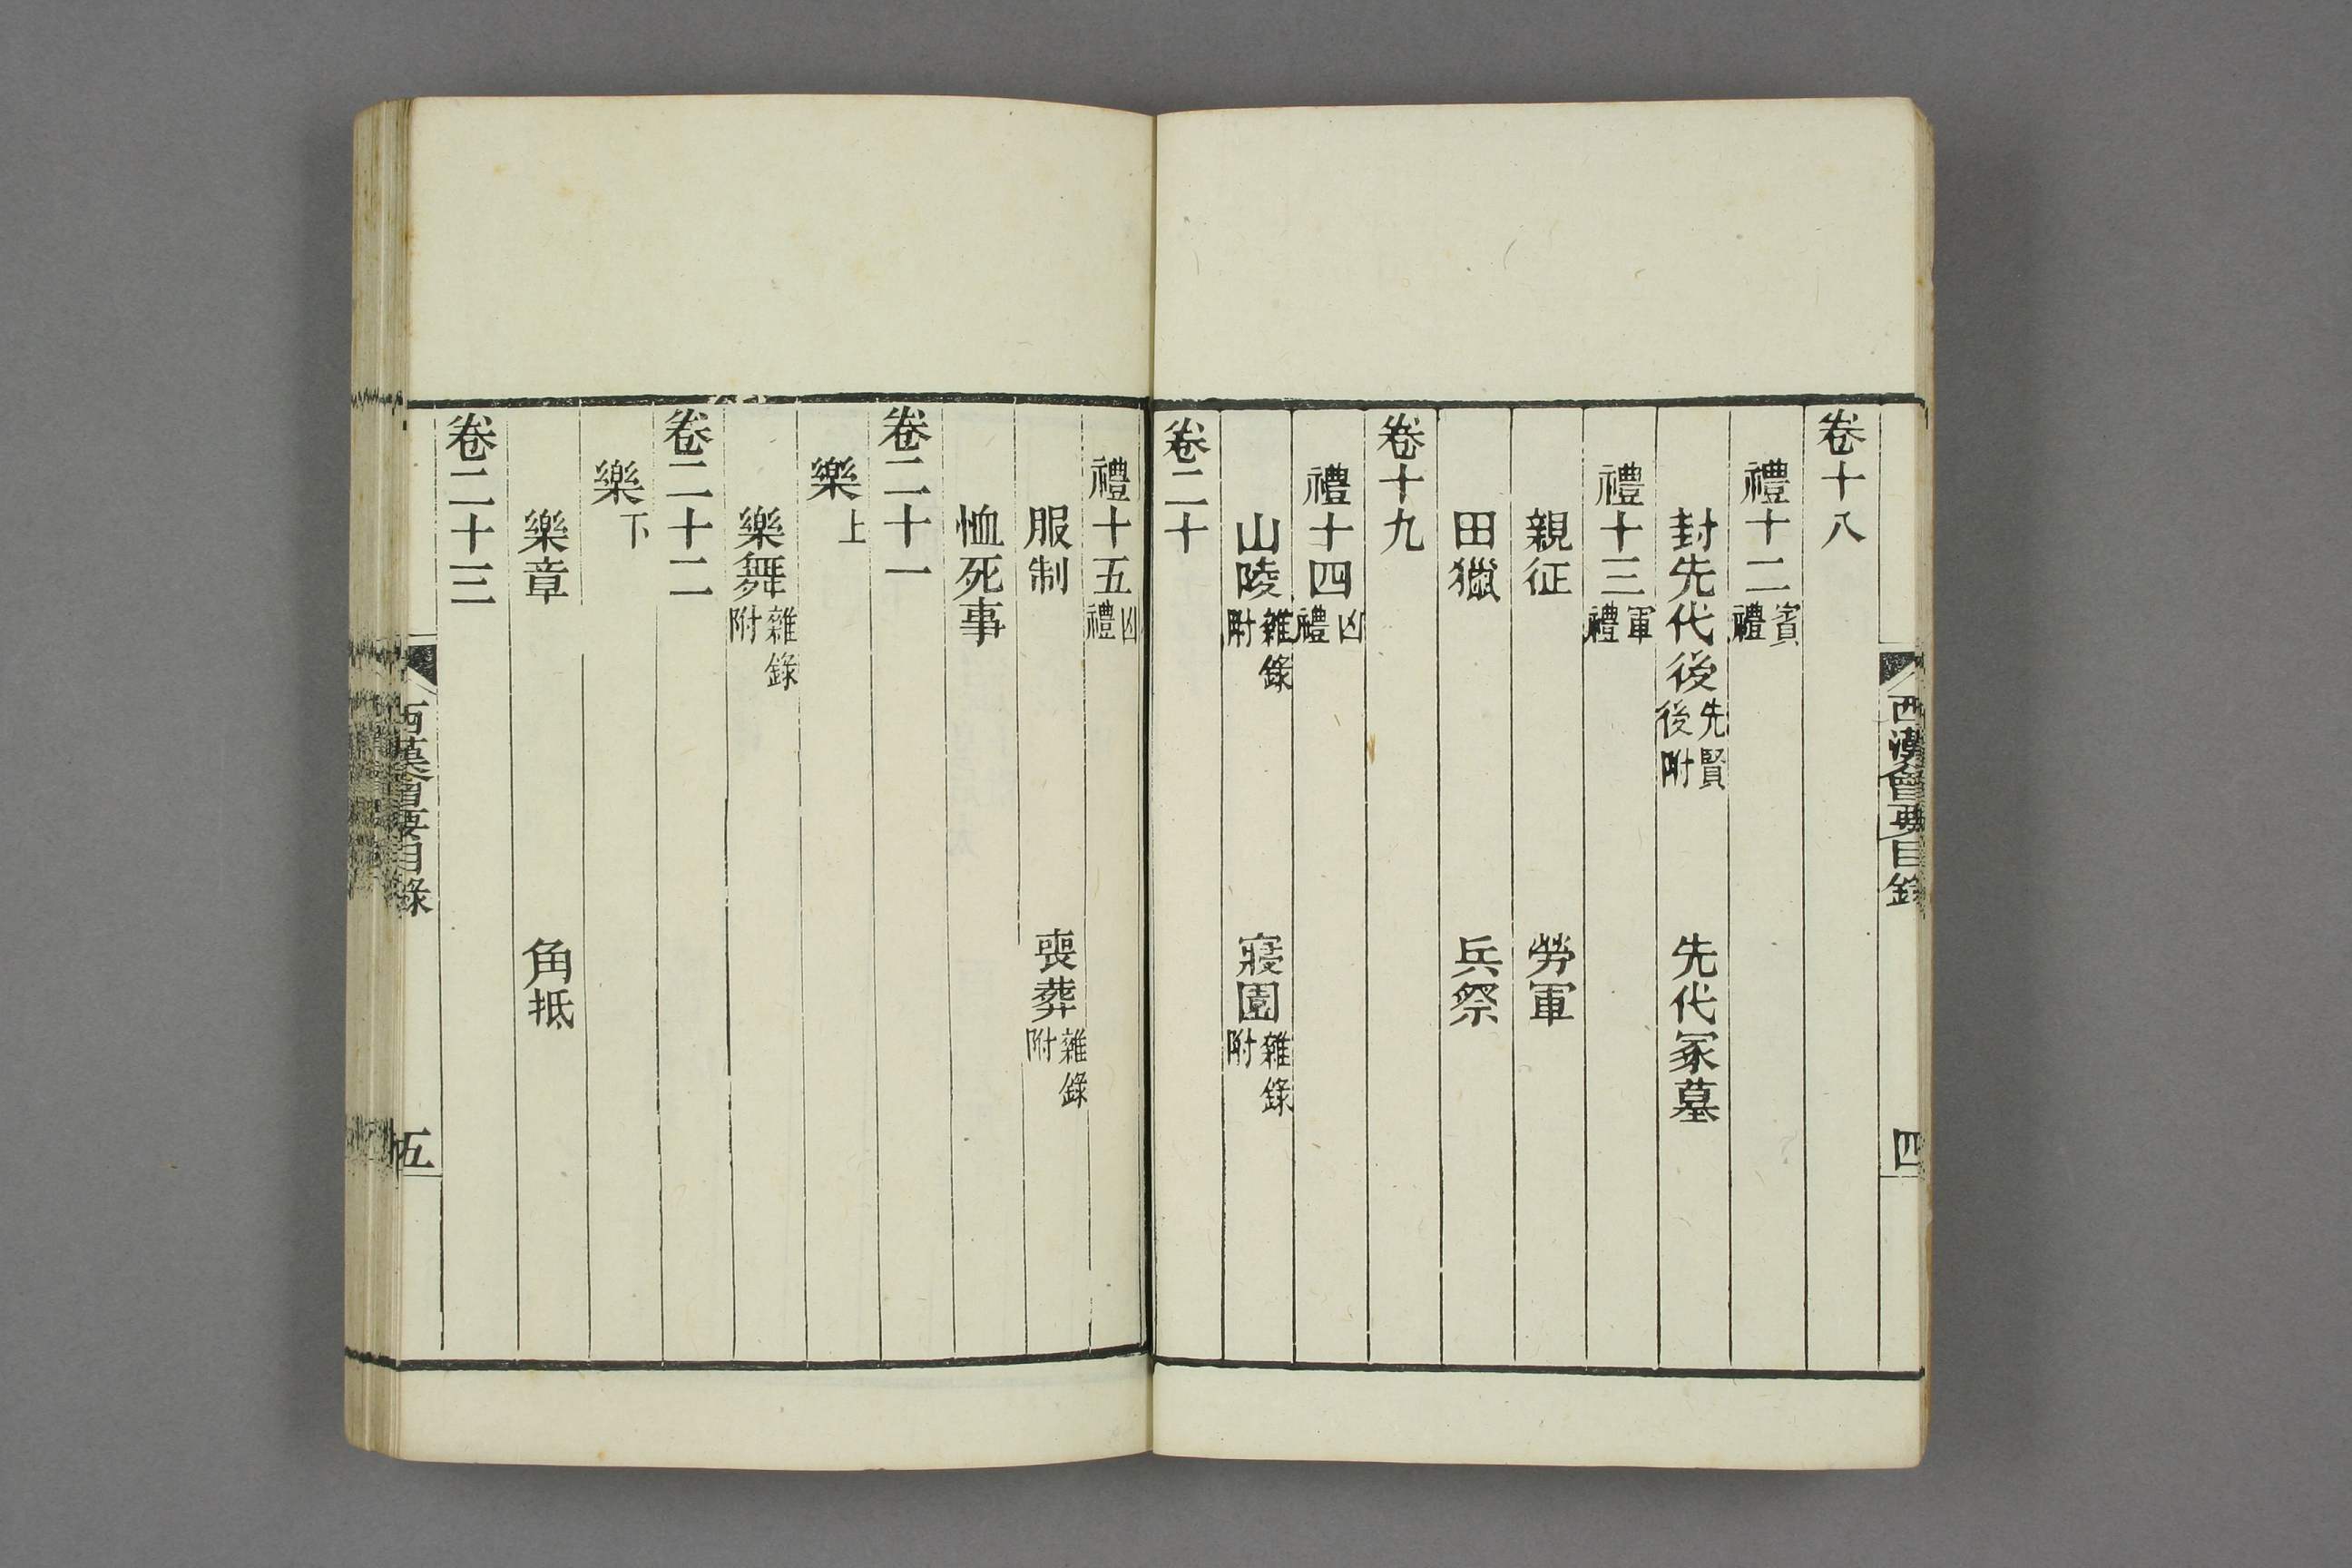 西漢會要目錄 四
卷十八
禮十二 賓禮
封先代後 先賢後附 先代冢墓
禮十三 軍禮
親征 勞軍
田獵 兵祭
卷十九
禮十四 凶禮
山陵 雜錄附 寢園 雜錄附
卷二十
禮十五 凶禮
服制 喪葬 雜錄附
恤死事
卷二十一
樂上
樂舞 雜錄附
卷二十二
樂下
樂章 角抵
卷二十三
西漢會要目錄 五